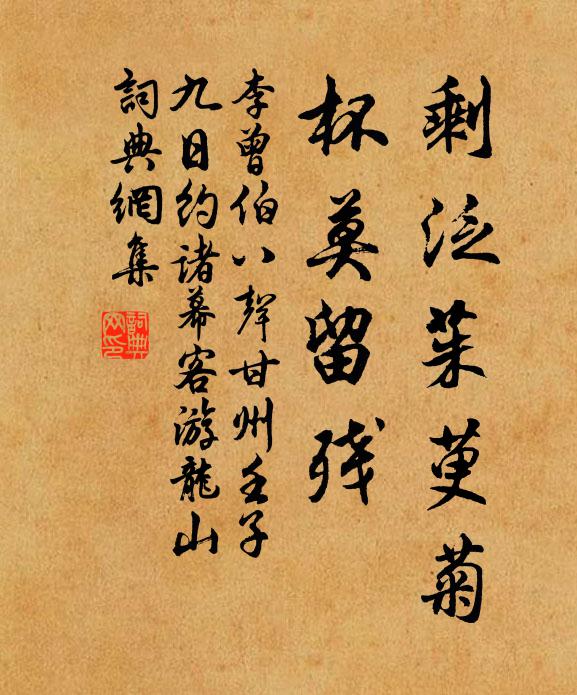 剩泛茱萸菊
杯莫留残
李曾伯八聲甘州壬子
九日约诸幕客游龍山
詞典網集
詞典网印